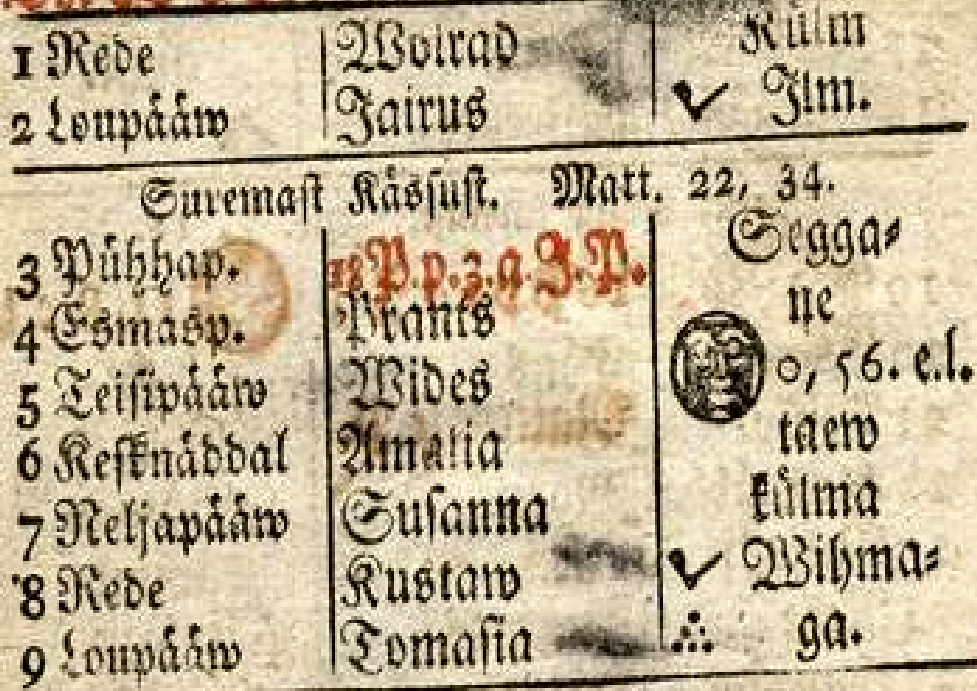 1 Rede Woirad Külm
2 Loupääw Jairus Ilm.
Suremast Kässust. Matt. 22, 34.
3 Pühhap. 18 P. p. z. a. J. P. Segga⸗
4 Esmasp. Prants ne
5 Teisipääw Wides 0, 56. e.l.
6 Kesknäddal Amalia taew
7 Neljapääw Susanna külma
8 Rede Kustaw Wihma⸗
9 Loupääw Tomasia ga.